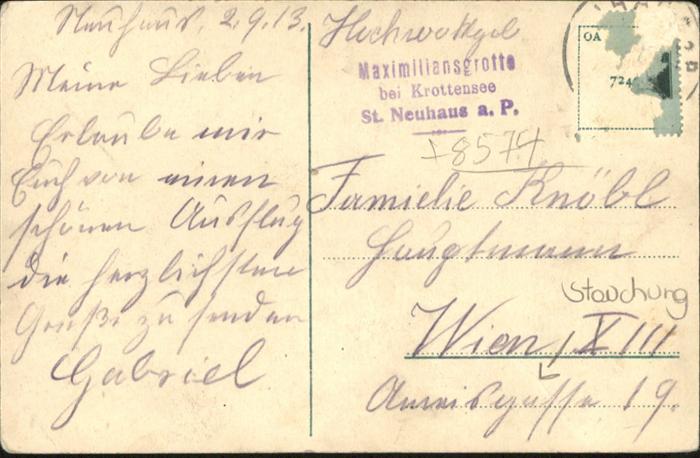 Neuhaus, 2.9.13.
Meine Lieben
Erlaube mir
Euch von einen
schönen Ausflug
die herzlichsten
Grüße zu senden
Gabriel
Hochwohlgeb
Maximiliansgrotte
bei Krottensee
St. Neuhaus a. P.
+8574
Familie Knöbl
Hauptmann
Stauchung
Wien, XIII
Ameisgasse 19.
OA
724